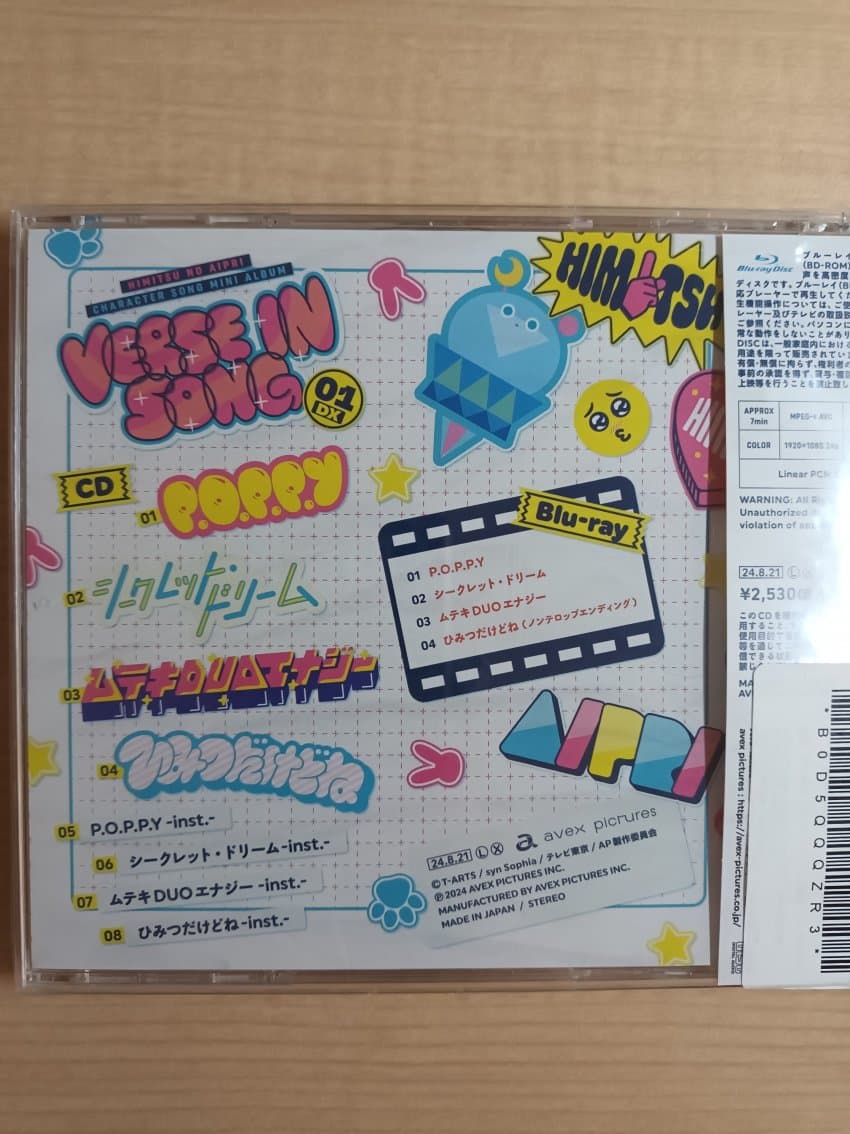 HIMITSU NO AIPRI
CHARACTER SONG MINI ALBUM
VERSE IN
SONG
01
DX
HIM TSU
CD
01 P.O.P.P.Y
02 シークレット・ドリーム
03 ムテキDUOエナジー
04 ひみつだけどね
05 P.O.P.P.Y -inst.-
06 シークレット・ドリーム-inst.-
07 ムテキDUOエナジー -inst.-
08 ひみつだけどね-inst.-
Blu-ray
01 P.O.P.P.Y
02 シークレット・ドリーム
03 ムテキDUOエナジー
04 ひみつだけどね(ノンテロップエンディング)
AIPRI
24.8.21 Ⓛ Ⓧ a avex pictures
©T-ARTS / syn Sophia / テレビ東京 / AP製作委員会
Ⓟ2024 AVEX PICTURES INC.
MANUFACTURED BY AVEX PICTURES INC.
MADE IN JAPAN / STEREO
HIMI
Blu-ray Disc
ブルーレイ
(BD-ROM)
声を高密度
ディスクです。ブルーレイ(B
応プレーヤーで再生してくだ
生機能操作については、ご使
レーヤー及びテレビの取扱説
ご参照ください。パソコンに
常な動作をしないことがあり
DISCは、一般家庭内における
用途を限って販売されていま
有償・無償に拘らず、権利者の
事前の承諾を得ず、
上映等を行うことを禁止致し
APPROX
7min
MPEG-4 AVC
COLOR
1920×1080 24p
Linear PCM
WARNING: All Ri
Unauthorized
violation of
24.8.21 Ⓛ
¥2,530
このCDを権
用すること、
使用目的で
等を通じて
信できる
禁じ
MA
AV
avex pictures : https://avex-pictures.co.jp/
*B0D5QQQZR3*